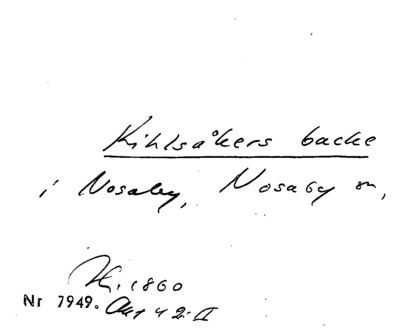 Kihlsåkers backe
i Nosaby, Nosaby sn,
1860
Nr 7949. Akt 4